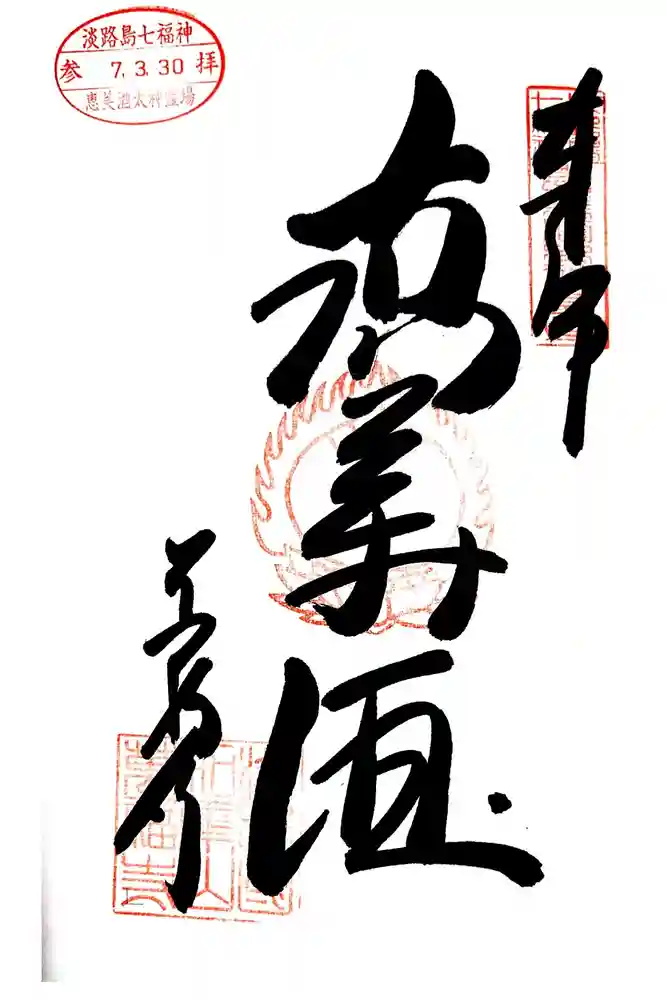 淡路島七福神
参 7.3.30 拝
恵美酒太神霊場
奉拝
恵美酒
萬福寺